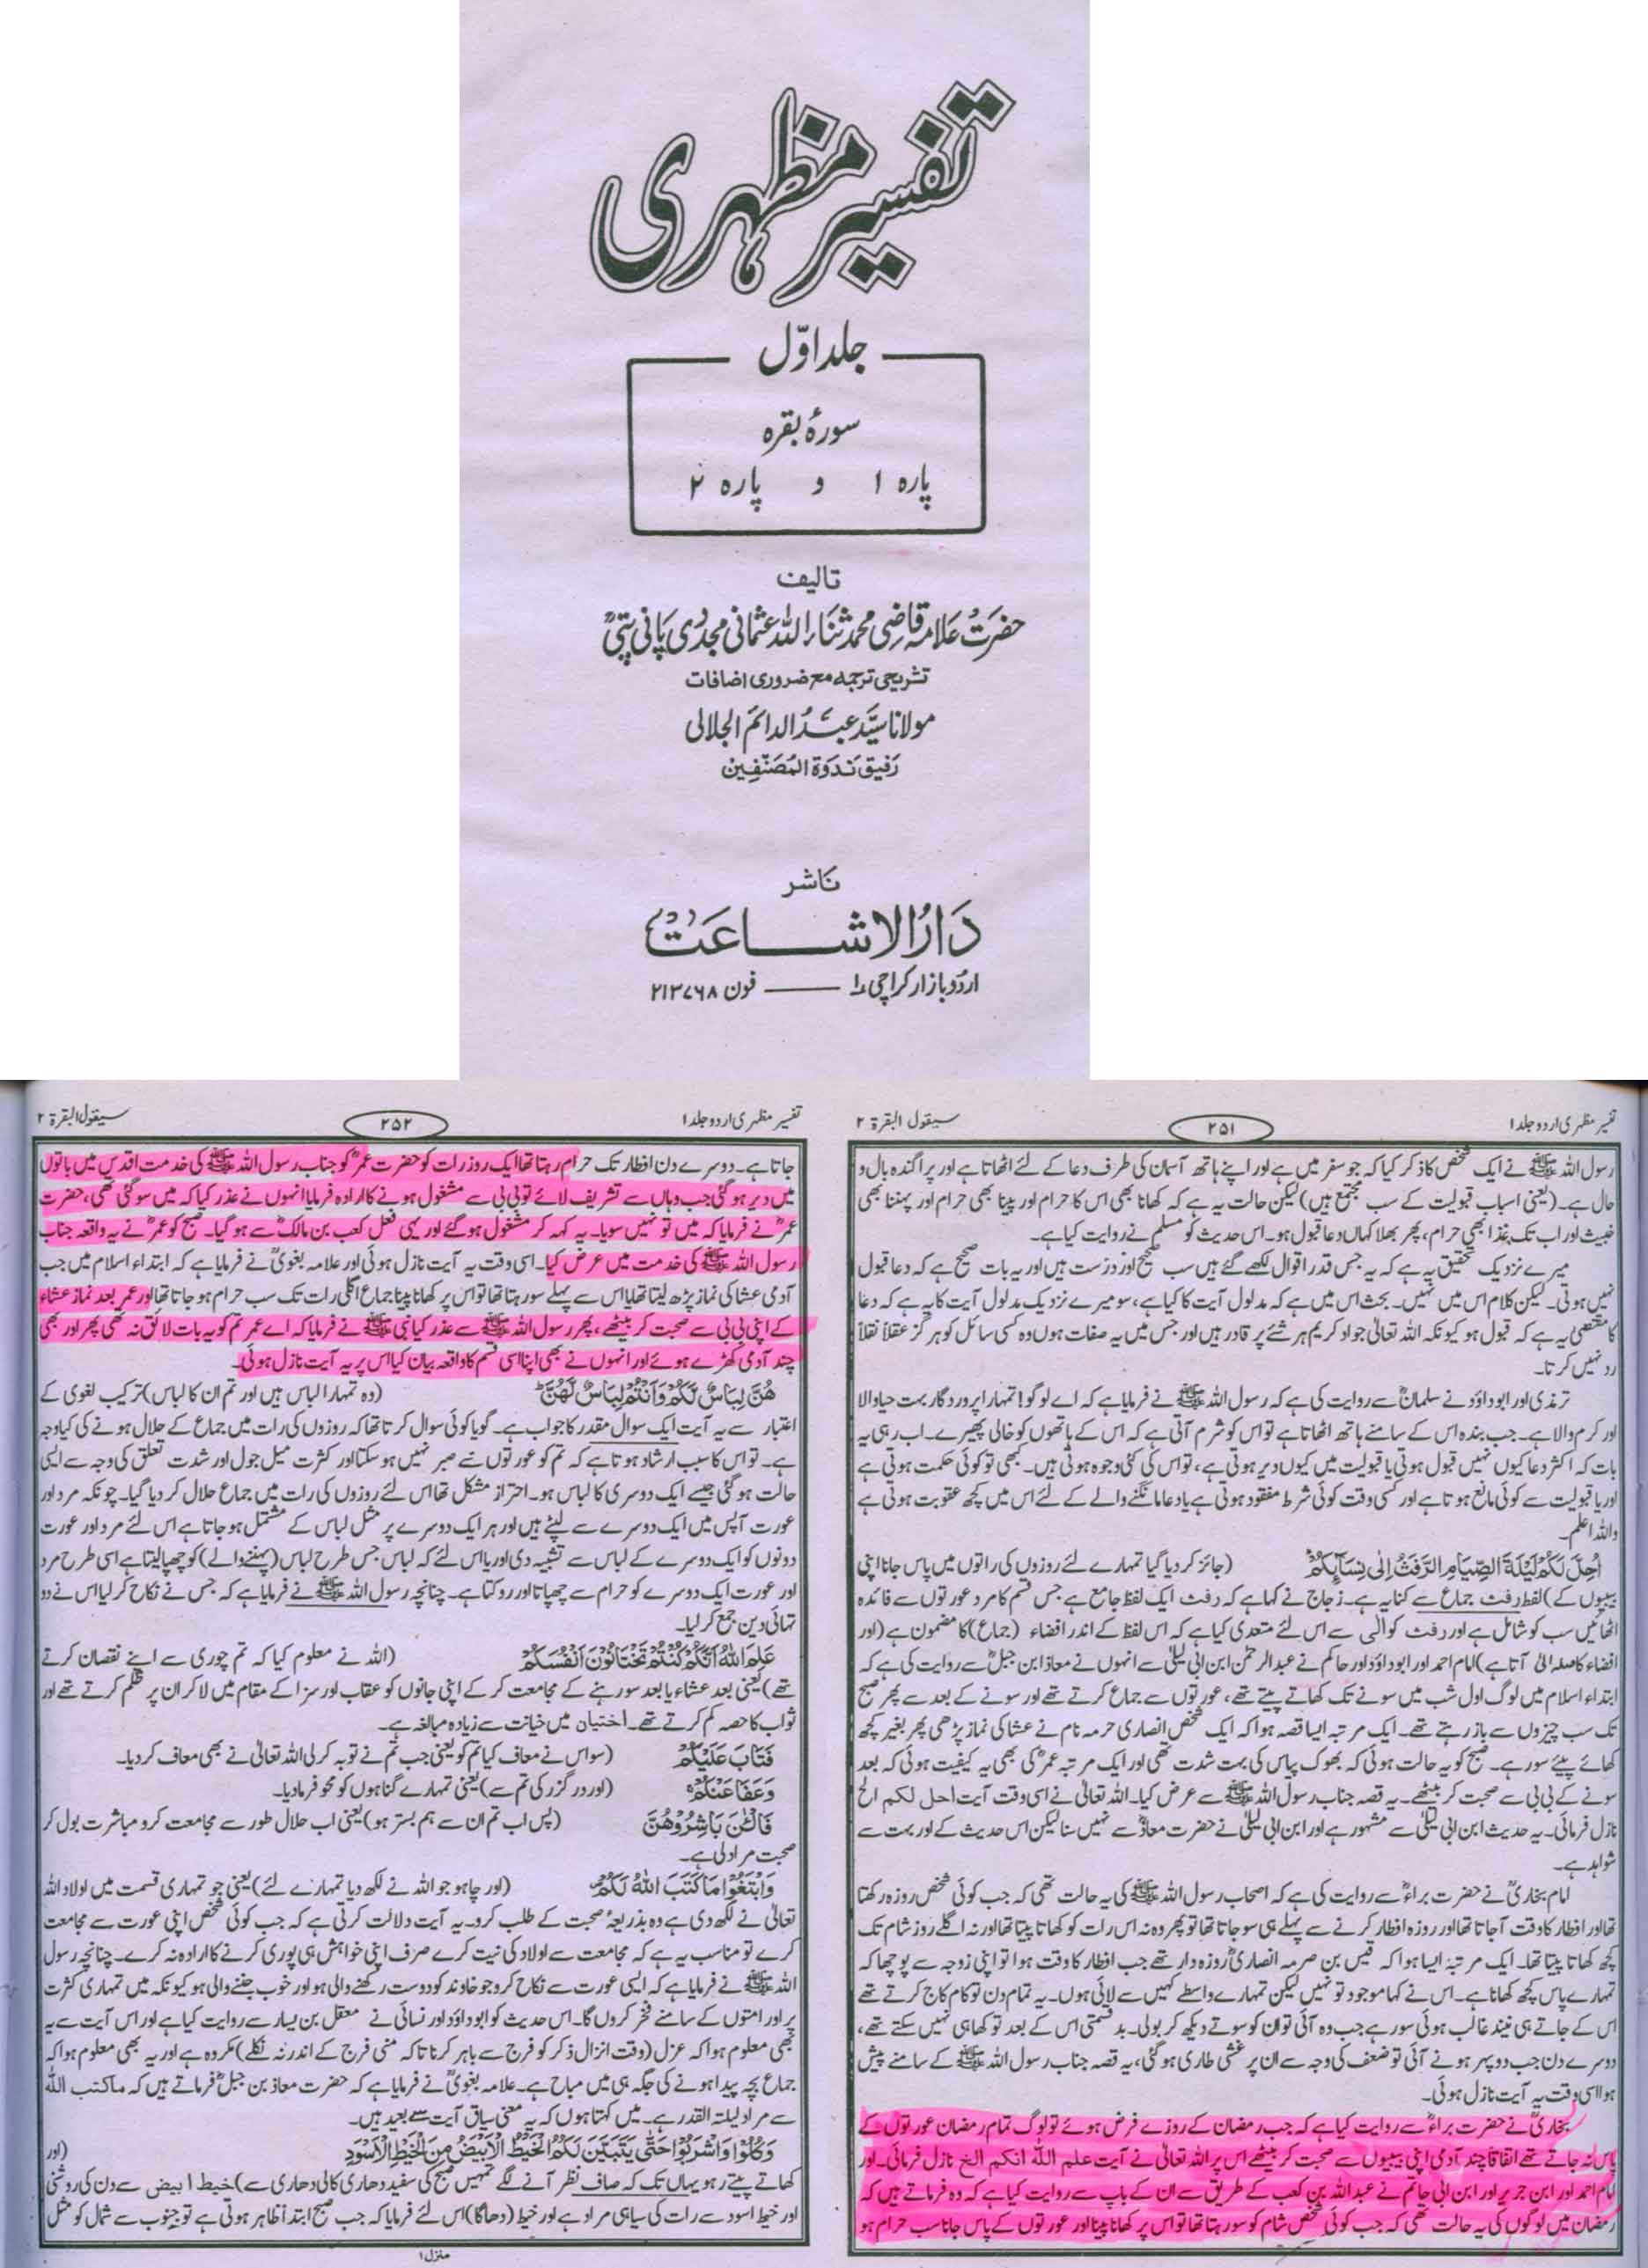 تفسیر مظہری
جلد اوّل
سورۂ بقرہ
پارہ ۱ و پارہ ۲
تالیف
حضرت علامہ قاضی محمد ثناء اللہ عثمانی مجددی پانی پتیؒ
تشریحی ترجمہ مع ضروری اضافات
مولانا سید عبد الدائم الجلالی
رفیق ندوۃ المصنفین
ناشر
دار الاشاعت
اردو بازار کراچی ۱ فون ۲۱۳۷۶۸
تفسیر مظہری اردو جلد ۱ ۲۵۱ سیقول البقرة ۲
رسول اللہ ﷺ نے ایک شخص کا ذکر کیا کہ جو سفر میں ہے اور اپنے ہاتھ آسمان کی طرف دعا کے لئے اٹھاتا ہے اور پراگندہ بال و
حال ہے۔ (یعنی اسباب قبولیت کے سب مجتمع ہیں) لیکن حالت یہ ہے کہ کھانا بھی اس کا حرام اور پینا بھی حرام اور پہننا بھی
خبیث اور اب تک غذا بھی حرام، پھر بھلا کہاں دعا قبول ہو۔ اس حدیث کو مسلم نے روایت کیا ہے۔
میرے نزدیک تحقیق یہ ہے کہ یہ جس قدر اقوال لکھے گئے ہیں سب صحیح اور درست ہیں اور یہ بات صحیح ہے کہ دعا قبول
نہیں ہوتی۔ لیکن کلام اس میں نہیں۔ بحث اس میں ہے کہ مدلول آیت کا کیا ہے، سو میرے نزدیک مدلول آیت کا یہ ہے کہ دعا
کا مقتضی یہ ہے کہ قبول ہو کیونکہ اللہ تعالیٰ جواد کریم ہر شئے پر قادر ہیں اور جس میں یہ صفات ہوں وہ کسی سائل کو ہرگز عقلاً نقلاً
رد نہیں کرتا۔
ترمذی اور ابو داؤد نے سلمانؓ سے روایت کی ہے کہ رسول اللہ ﷺ نے فرمایا ہے کہ اے لوگو! تمہارا پروردگار بہت حیا والا
اور کرم والا ہے۔ جب بندہ اس کے سامنے ہاتھ اٹھاتا ہے تو اس کو شرم آتی ہے کہ اس کے ہاتھوں کو خالی پھیرے۔ اب رہی یہ
بات کہ اکثر دعا کیوں نہیں قبول ہوتی یا قبولیت میں کیوں دیر ہوتی ہے، تو اس کی کئی وجوہ ہوتی ہیں۔ کبھی تو کوئی حکمت ہوتی ہے
اور یا قبولیت سے کوئی مانع ہوتا ہے اور کسی وقت کوئی شرط مفقود ہوتی ہے یا دعا مانگنے والے کے لئے اس میں کچھ عقوبت ہوتی ہے
واللہ اعلم۔
اُحِلَّ لَكُمْ لَيْلَةَ الصِّيَامِ الرَّفَثُ اِلٰى نِسَآئِكُمْ (جائز کر دیا گیا تمہارے لئے روزوں کی راتوں میں پاس جانا اپنی
بیبیوں کے) لفظ رفث جماع سے کنایہ ہے۔ زجاج نے کہا ہے کہ رفث ایک لفظ جامع ہے جس قسم کا مرد عورتوں سے فائدہ
اٹھائیں سب کو شامل ہے اور رفث کو الٰی سے اس لئے متعدی کیا ہے کہ اس لفظ کے اندر افضاء (جماع) کا مضمون ہے (اور
افضاء کا صلہ الیٰ آتا ہے) امام احمد اور ابو داؤد اور حاکم نے عبد الرحمٰن ابن ابی لیلیٰ سے انہوں نے معاذ ابن جبلؓ سے روایت کی ہے کہ
ابتداء اسلام میں لوگ اول شب میں سونے تک کھاتے پیتے تھے، عورتوں سے جماع کرتے تھے اور سونے کے بعد سے پھر صبح
تک سب چیزوں سے باز رہتے تھے۔ ایک مرتبہ ایسا قصہ ہوا کہ ایک شخص انصاری حرمہ نام نے عشا کی نماز پڑھی پھر بغیر کچھ
کھائے پیئے سو رہے۔ صبح کو یہ حالت ہوئی کہ بھوک پیاس کی بہت شدت تھی اور ایک مرتبہ عمرؓ کی بھی یہ کیفیت ہوئی کہ بعد
سونے کے بی بی سے صحبت کر بیٹھے۔ یہ قصہ جناب رسول اللہ ﷺ سے عرض کیا۔ اللہ تعالیٰ نے اسی وقت آیت احل لکم الخ
نازل فرمائی۔ یہ حدیث ابن ابی لیلیٰ سے مشہور ہے اور ابن ابی لیلیٰ نے حضرت معاذؓ سے نہیں سنا لیکن اس حدیث کے اور بہت سے
شواہد ہے۔
امام بخاریؒ نے حضرت براءؓ سے روایت کی ہے کہ اصحاب رسول اللہ ﷺ کی یہ حالت تھی کہ جب کوئی شخص روزہ رکھتا
تھا اور افطار کا وقت آجاتا تھا اور روزہ افطار کرنے سے پہلے ہی سو جاتا تھا تو پھر وہ نہ اس رات کو کھاتا پیتا تھا اور نہ اگلے روز شام تک
کچھ کھاتا پیتا تھا۔ ایک مرتبہ ایسا ہوا کہ قیس بن صرمہ انصاریؓ روزہ دار تھے جب افطار کا وقت ہوا تو اپنی زوجہ سے پوچھا کہ
تمہارے پاس کچھ کھانا ہے۔ اس نے کہا موجود تو نہیں لیکن تمہارے واسطے کہیں سے لاتی ہوں۔ یہ تمام دن تو کام کاج کرتے تھے
اس کے جاتے ہی نیند غالب ہوئی سو رہے جب وہ آئی تو ان کو سوتے دیکھ کر بولی۔ بد قسمتی اس کے بعد تو کھا ہی نہیں سکتے تھے،
دوسرے دن جب دوپہر ہونے آئی تو ضعف کی وجہ سے ان پر غشی طاری ہو گئی، یہ قصہ جناب رسول اللہ ﷺ کے سامنے پیش
ہوا اسی وقت یہ آیت نازل ہوئی۔
بخاریؒ نے حضرت براءؓ سے روایت کیا ہے کہ جب رمضان کے روزے فرض ہوئے تو لوگ تمام رمضان عورتوں کے
پاس نہ جاتے تھے اتفاقاً چند آدمی اپنی بیبیوں سے صحبت کر بیٹھے اس پر اللہ تعالیٰ نے آیت علم اللہ انکم الخ نازل فرمائی۔ اور
امام احمد اور ابن جریر اور ابن ابی حاتم نے عبداللہ بن کعب کے طریق سے ان کے باپ سے روایت کیا ہے کہ وہ فرماتے ہیں کہ
رمضان میں لوگوں کی یہ حالت تھی کہ جب کوئی شخص شام کو سو رہتا تھا تو اس پر کھانا پینا اور عورتوں کے پاس جانا سب حرام ہو
تفسیر مظہری اردو جلد ۱ ۲۵۲ سیقول البقرة ۲
جاتا ہے۔ دوسرے دن افطار تک حرام رہتا تھا ایک روز رات کو حضرت عمرؓ کو جناب رسول اللہ ﷺ کی خدمت اقدس میں باتوں
میں دیر ہو گئی جب وہاں سے تشریف لائے تو بی بی سے مشغول ہونے کا ارادہ فرمایا انہوں نے عذر کیا کہ میں سو گئی تھی، حضرت
عمرؓ نے فرمایا کہ میں تو نہیں سویا۔ یہ کہہ کر مشغول ہو گئے اور یہی فعل کعب بن مالکؓ سے ہو گیا۔ صبح کو عمرؓ نے یہ واقعہ جناب
رسول اللہ ﷺ کی خدمت میں عرض کیا۔ اسی وقت یہ آیت نازل ہوئی اور علامہ بغویؒ نے فرمایا ہے کہ ابتداء اسلام میں جب
آدمی عشا کی نماز پڑھ لیتا تھا یا اس سے پہلے سو رہتا تھا تو اس پر کھانا پینا جماع اگلی رات تک سب حرام ہو جاتا تھا اور عمر بعد نماز عشاء
کے اپنی بی بی سے صحبت کر بیٹھے، پھر رسول اللہ ﷺ سے عذر کیا نبی ﷺ نے فرمایا کہ اے عمر تم کو یہ بات لائق نہ تھی پھر اور بھی
چند آدمی کھڑے ہوئے اور انہوں نے بھی اپنا اسی قسم کا واقعہ بیان کیا اس پر یہ آیت نازل ہوئی۔
هُنَّ لِبَاسٌ لَّكُمْ وَاَنْتُمْ لِبَاسٌ لَّهُنَّ (وہ تمہارا لباس ہیں اور تم ان کا لباس) ترکیب لغوی کے
اعتبار سے یہ آیت ایک سوال مقدر کا جواب ہے۔ گویا کوئی سوال کرتا تھا کہ روزوں کی رات میں جماع کے حلال ہونے کی کیا وجہ
ہے۔ تو اس کا سبب ارشاد ہوتا ہے کہ تم کو عورتوں سے صبر نہیں ہو سکتا اور کثرت میل جول اور شدت تعلق کی وجہ سے ایسی
حالت ہو گئی جیسے ایک دوسری کا لباس ہو۔ احتراز مشکل تھا اس لئے روزوں کی رات میں جماع حلال کر دیا گیا۔ چونکہ مرد اور
عورت آپس میں ایک دوسرے سے لپٹے ہیں اور ہر ایک دوسرے پر مثل لباس کے مشتمل ہو جاتا ہے اس لئے مرد اور عورت
دونوں کو ایک دوسرے کے لباس سے تشبیہ دی اور یا اس لئے کہ لباس جس طرح لباس (پہننے والے) کو چھپا لیتا ہے اسی طرح مرد
اور عورت ایک دوسرے کو حرام سے چھپاتا اور روکتا ہے۔ چنانچہ رسول اللہ ﷺ نے فرمایا ہے کہ جس نے نکاح کر لیا اس نے دو
تہائی دین جمع کر لیا۔
عَلِمَ اللّٰهُ اَنَّكُمْ كُنْتُمْ تَخْتَانُوْنَ اَنْفُسَكُمْ (اللہ نے معلوم کیا کہ تم چوری سے اپنے نقصان کرتے
تھے) یعنی بعد عشاء یا بعد سو رہنے کے مجامعت کر کے اپنی جانوں کو عقاب اور سزا کے مقام میں لا کر ان پر ظلم کرتے تھے اور
ثواب کا حصہ کم کرتے تھے۔ اختیان میں خیانت سے زیادہ مبالغہ ہے۔
فَتَابَ عَلَيْكُمْ (سو اس نے معاف کیا تم کو یعنی جب تم نے توبہ کر لی اللہ تعالیٰ نے بھی معاف کر دیا۔
وَعَفَا عَنْكُمْ (اور درگزر کی تم سے) یعنی تمہارے گناہوں کو محو فرما دیا۔
فَالْـٰٔنَ بَاشِرُوْهُنَّ (پس اب تم ان سے ہم بستر ہو) یعنی اب حلال طور سے مجامعت کرو مباشرت بول کر
صحبت مراد لی ہے۔
وَابْتَغُوْا مَا كَتَبَ اللّٰهُ لَكُمْ (اور چاہو جو اللہ نے لکھ دیا تمہارے لئے) یعنی جو تمہاری قسمت میں اولاد اللہ
تعالیٰ نے لکھ دی ہے وہ بذریعۂ صحبت کے طلب کرو۔ یہ آیت دلالت کرتی ہے کہ جب کوئی شخص اپنی عورت سے مجامعت
کرے تو مناسب یہ ہے کہ مجامعت سے اولاد کی نیت کرے صرف اپنی خواہش ہی پوری کرنے کا ارادہ نہ کرے۔ چنانچہ رسول
اللہ ﷺ نے فرمایا ہے کہ ایسی عورت سے نکاح کرو جو خاوند کو دوست رکھنے والی ہو اور خوب جننے والی ہو کیونکہ میں تمہاری کثرت
پر اور امتوں کے سامنے فخر کروں گا۔ اس حدیث کو ابو داؤد اور نسائی نے معقل بن یسار سے روایت کیا ہے اور اس آیت سے یہ
بھی معلوم ہوا کہ عزل (وقت انزال ذکر کو فرج سے باہر کرنا تاکہ منی فرج کے اندر نہ نکلے) مکروہ ہے اور یہ بھی معلوم ہوا کہ
جماع بچہ پیدا ہونے کی جگہ ہی میں مباح ہے۔ علامہ بغویؒ نے فرمایا ہے کہ حضرت معاذ بن جبلؓ فرماتے ہیں کہ ماکتب اللہ
سے مراد لیلۃ القدر ہے۔ میں کہتا ہوں کہ یہ معنی سیاق آیت سے بعید ہیں۔
وَكُلُوْا وَاشْرَبُوْا حَتّٰى يَتَبَيَّنَ لَكُمُ الْخَيْطُ الْاَبْيَضُ مِنَ الْخَيْطِ الْاَسْوَدِ (اور
کھاتے پیتے رہو یہاں تک کہ صاف نظر آنے لگے تمہیں صبح کی سفید دھاری کالی دھاری سے) خیط ابیض سے دن کی روشنی
اور خیط اسود سے رات کی سیاہی مراد ہے اور خیط (دھاگا) اس لئے فرمایا کہ جب صبح ابتداً ظاہر ہوتی ہے تو جنوب سے شمال کو مثل
منزل ۱